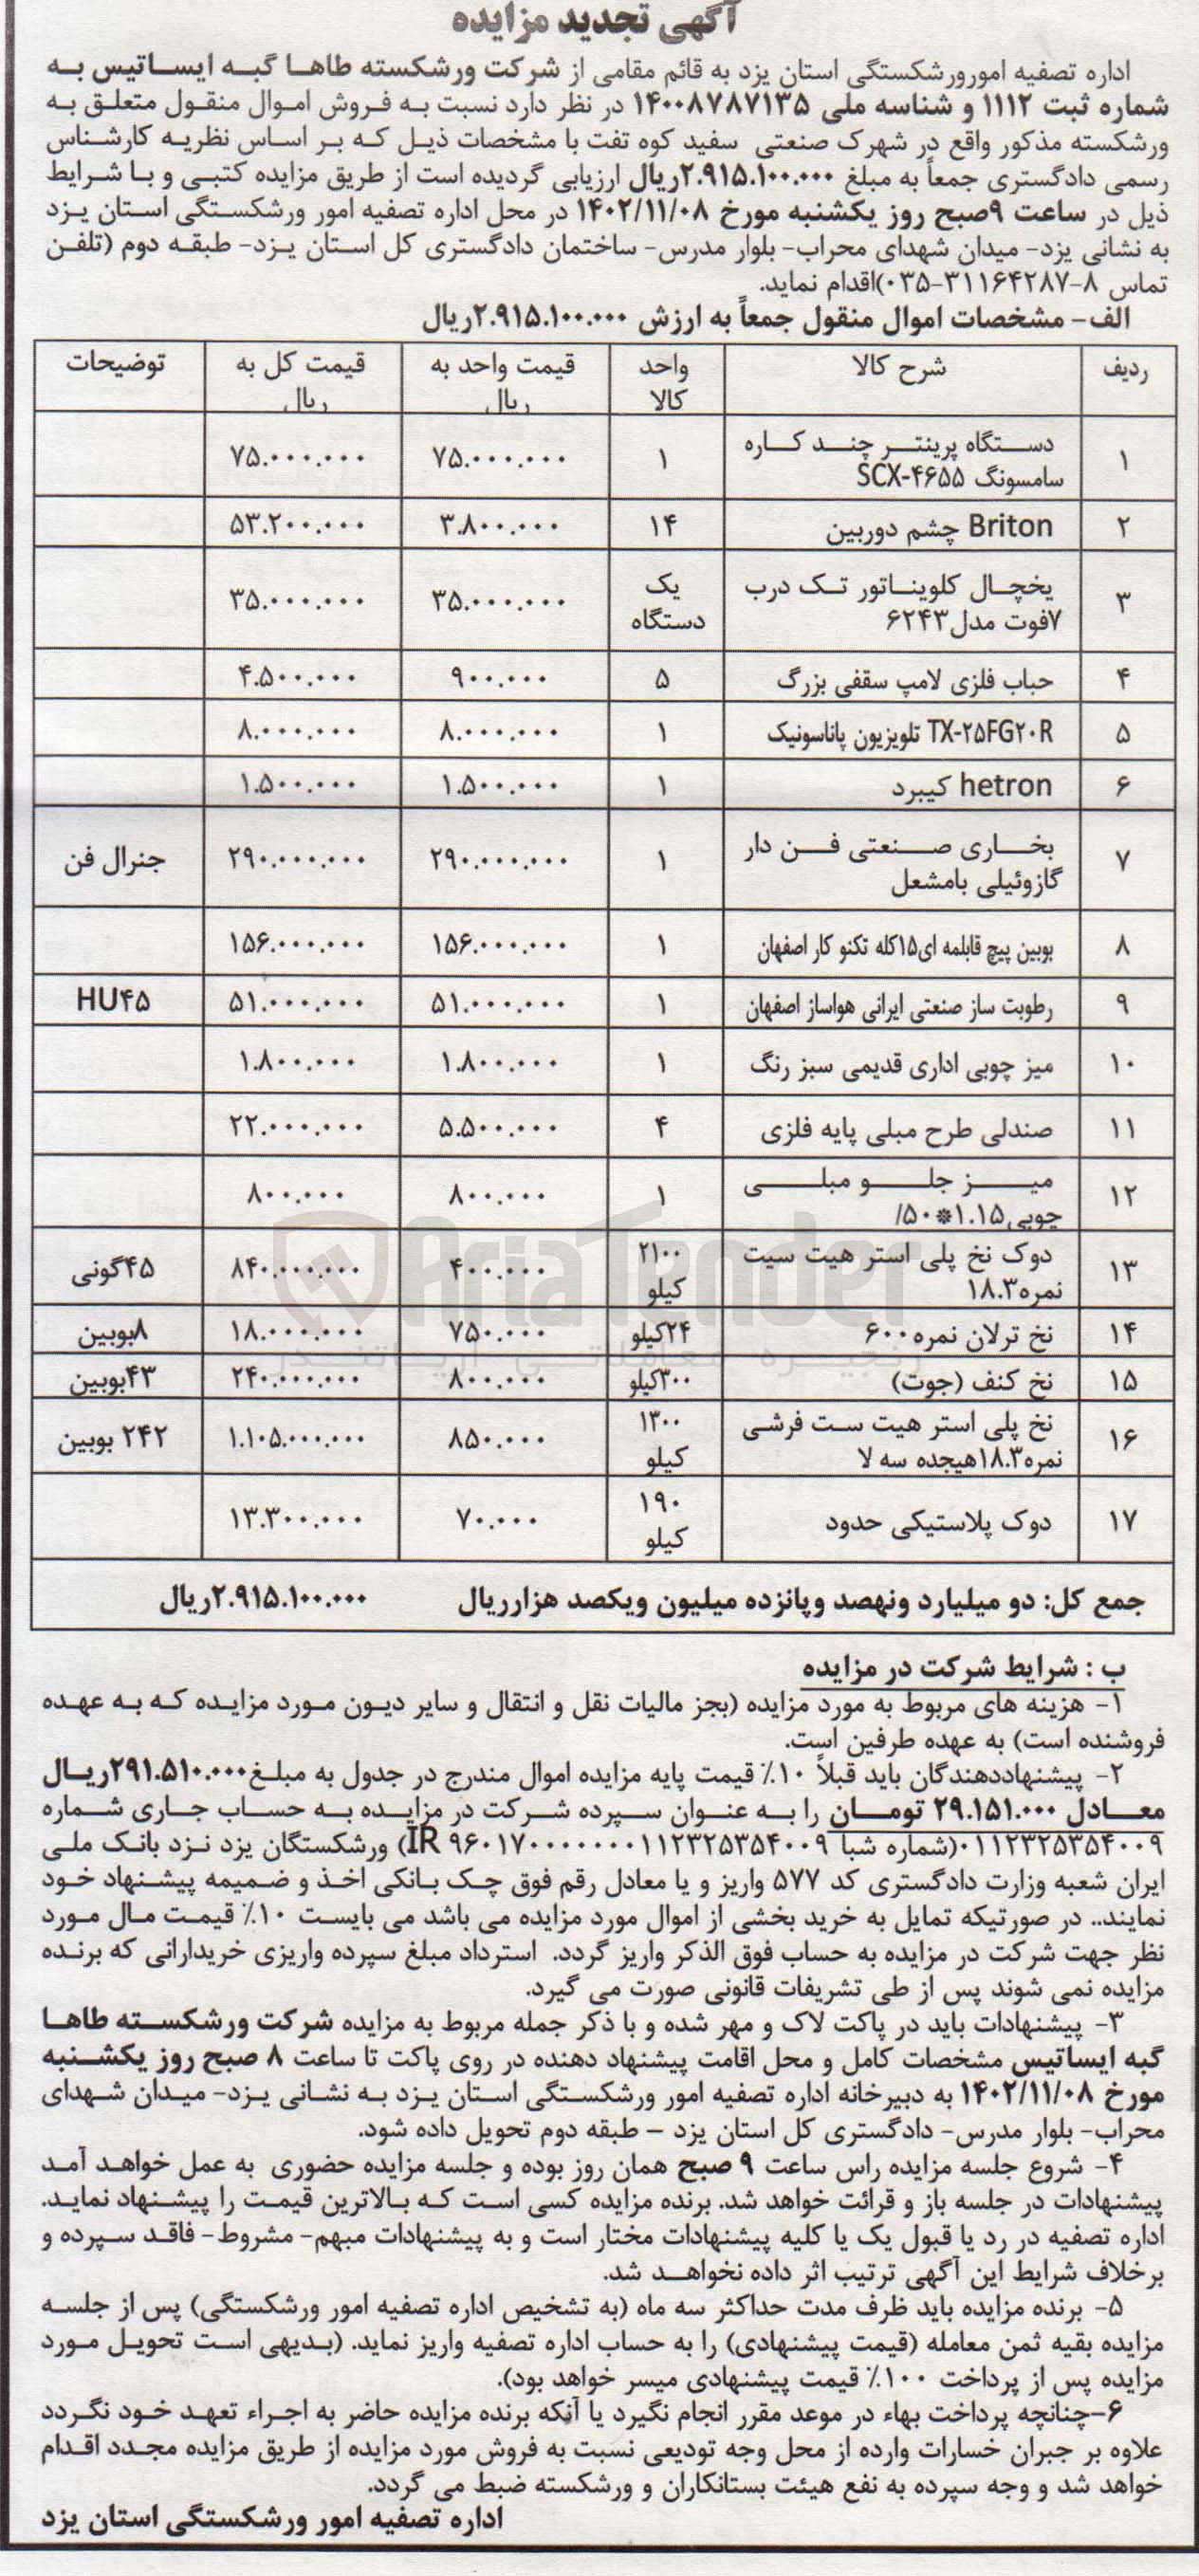 آگهی تجدید مزایده
اداره تصفیه امورورشکستگی استان یزد به قائم مقامی از شرکت ورشکسته طاها گبه ایساتیس به
شماره ثبت ۱۱۱۲ و شناسه ملی ۱۴۰۰۸۷۸۷۱۳۵ در نظر دارد نسبت به فروش اموال منقول متعلق به
ورشکسته مذکور واقع در شهرک صنعتی سفید کوه تفت با مشخصات ذیل که بر اساس نظریه کارشناس
رسمی دادگستری جمعاً به مبلغ ۲.۹۱۵.۱۰۰.۰۰۰ریال ارزیابی گردیده است از طریق مزایده کتبی و با شرایط
ذیل در ساعت ۹صبح روز یکشنبه مورخ ۱۴۰۲/۱۱/۰۸ در محل اداره تصفیه امور ورشکستگی استان یزد
به نشانی یزد- میدان شهدای محراب- بلوار مدرس- ساختمان دادگستری کل استان یزد- طبقه دوم (تلفن
تماس ۸-۳۱۱۶۴۲۸۷-۰۳۵)اقدام نماید.
الف- مشخصات اموال منقول جمعاً به ارزش ۲.۹۱۵.۱۰۰.۰۰۰ریال
ردیف شرح کالا واحد کالا قیمت واحد به ریال قیمت کل به ریال توضیحات
۱ دستگاه پرینتر چند کاره سامسونگ SCX-۴۶۵۵ ۱ ۷۵.۰۰۰.۰۰۰ ۷۵.۰۰۰.۰۰۰
۲ Briton چشم دوربین ۱۴ ۳.۸۰۰.۰۰۰ ۵۳.۲۰۰.۰۰۰
۳ یخچال کلویناتور تک درب ۷فوت مدل۶۲۴۳ یک دستگاه ۳۵.۰۰۰.۰۰۰ ۳۵.۰۰۰.۰۰۰
۴ حباب فلزی لامپ سقفی بزرگ ۵ ۹۰۰.۰۰۰ ۴.۵۰۰.۰۰۰
۵ TX-۲۵FG۲۰R تلویزیون پاناسونیک ۱ ۸.۰۰۰.۰۰۰ ۸.۰۰۰.۰۰۰
۶ hetron کیبرد ۱ ۱.۵۰۰.۰۰۰ ۱.۵۰۰.۰۰۰
۷ بخاری صنعتی فن دار گازوئیلی بامشعل ۱ ۲۹۰.۰۰۰.۰۰۰ ۲۹۰.۰۰۰.۰۰۰ جنرال فن
۸ بوبین پیچ قابلمه ای۱۵کله تکنو کار اصفهان ۱ ۱۵۶.۰۰۰.۰۰۰ ۱۵۶.۰۰۰.۰۰۰
۹ رطوبت ساز صنعتی ایرانی هواساز اصفهان ۱ ۵۱.۰۰۰.۰۰۰ ۵۱.۰۰۰.۰۰۰ HU۴۵
۱۰ میز چوبی اداری قدیمی سبز رنگ ۱ ۱.۸۰۰.۰۰۰ ۱.۸۰۰.۰۰۰
۱۱ صندلی طرح مبلی پایه فلزی ۴ ۵.۵۰۰.۰۰۰ ۲۲.۰۰۰.۰۰۰
۱۲ میز جلو مبلی چوبی۱.۱۵*۵۰/ ۱ ۸۰۰.۰۰۰ ۸۰۰.۰۰۰
۱۳ دوک نخ پلی استر هیت سیت نمره۱۸.۳ ۲۱۰۰ کیلو ۴۰۰.۰۰۰ ۸۴۰.۰۰۰.۰۰۰ ۴۵گونی
۱۴ نخ ترلان نمره۶۰۰ ۲۴کیلو ۷۵۰.۰۰۰ ۱۸.۰۰۰.۰۰۰ ۸بوبین
۱۵ نخ کنف (جوت) ۳۰۰کیلو ۸۰۰.۰۰۰ ۲۴۰.۰۰۰.۰۰۰ ۴۳بوبین
۱۶ نخ پلی استر هیت ست فرشی نمره۱۸.۳هیجده سه لا ۱۳۰۰ کیلو ۸۵۰.۰۰۰ ۱.۱۰۵.۰۰۰.۰۰۰ ۲۴۲ بوبین
۱۷ دوک پلاستیکی حدود ۱۹۰ کیلو ۷۰.۰۰۰ ۱۳.۳۰۰.۰۰۰
جمع کل: دو میلیارد ونهصد وپانزده میلیون ویکصد هزارریال ۲.۹۱۵.۱۰۰.۰۰۰ریال
AriaTender
زنجیره معاملاتی آریاتندر
ب : شرایط شرکت در مزایده
۱- هزینه های مربوط به مورد مزایده (بجز مالیات نقل و انتقال و سایر دیون مورد مزایده که به عهده
فروشنده است) به عهده طرفین است.
۲- پیشنهاددهندگان باید قبلاً ۱۰٪ قیمت پایه مزایده اموال مندرج در جدول به مبلغ۲۹۱.۵۱۰.۰۰۰ریال
معادل ۲۹.۱۵۱.۰۰۰ تومان را به عنوان سپرده شرکت در مزایده به حساب جاری شماره
۰۱۱۲۳۲۵۳۵۴۰۰۹(شماره شبا IR ۹۶۰۱۷۰۰۰۰۰۰۰۱۱۲۳۲۵۳۵۴۰۰۹) ورشکستگان یزد نزد بانک ملی
ایران شعبه وزارت دادگستری کد ۵۷۷ واریز و یا معادل رقم فوق چک بانکی اخذ و ضمیمه پیشنهاد خود
نمایند.. در صورتیکه تمایل به خرید بخشی از اموال مورد مزایده می باشد می بایست ۱۰٪ قیمت مال مورد
نظر جهت شرکت در مزایده به حساب فوق الذکر واریز گردد. استرداد مبلغ سپرده واریزی خریدارانی که برنده
مزایده نمی شوند پس از طی تشریفات قانونی صورت می گیرد.
۳- پیشنهادات باید در پاکت لاک و مهر شده و با ذکر جمله مربوط به مزایده شرکت ورشکسته طاها
گبه ایساتیس مشخصات کامل و محل اقامت پیشنهاد دهنده در روی پاکت تا ساعت ۸ صبح روز یکشنبه
مورخ ۱۴۰۲/۱۱/۰۸ به دبیرخانه اداره تصفیه امور ورشکستگی استان یزد به نشانی یزد- میدان شهدای
محراب- بلوار مدرس- دادگستری کل استان یزد – طبقه دوم تحویل داده شود.
۴- شروع جلسه مزایده راس ساعت ۹ صبح همان روز بوده و جلسه مزایده حضوری به عمل خواهد آمد
پیشنهادات در جلسه باز و قرائت خواهد شد. برنده مزایده کسی است که بالاترین قیمت را پیشنهاد نماید.
اداره تصفیه در رد یا قبول یک یا کلیه پیشنهادات مختار است و به پیشنهادات مبهم- مشروط- فاقد سپرده و
برخلاف شرایط این آگهی ترتیب اثر داده نخواهد شد.
۵- برنده مزایده باید ظرف مدت حداکثر سه ماه (به تشخیص اداره تصفیه امور ورشکستگی) پس از جلسه
مزایده بقیه ثمن معامله (قیمت پیشنهادی) را به حساب اداره تصفیه واریز نماید. (بدیهی است تحویل مورد
مزایده پس از پرداخت ۱۰۰٪ قیمت پیشنهادی میسر خواهد بود).
۶-چنانچه پرداخت بهاء در موعد مقرر انجام نگیرد یا آنکه برنده مزایده حاضر به اجراء تعهد خود نگردد
علاوه بر جبران خسارات وارده از محل وجه تودیعی نسبت به فروش مورد مزایده از طریق مزایده مجدد اقدام
خواهد شد و وجه سپرده به نفع هیئت بستانکاران و ورشکسته ضبط می گردد.
اداره تصفیه امور ورشکستگی استان یزد